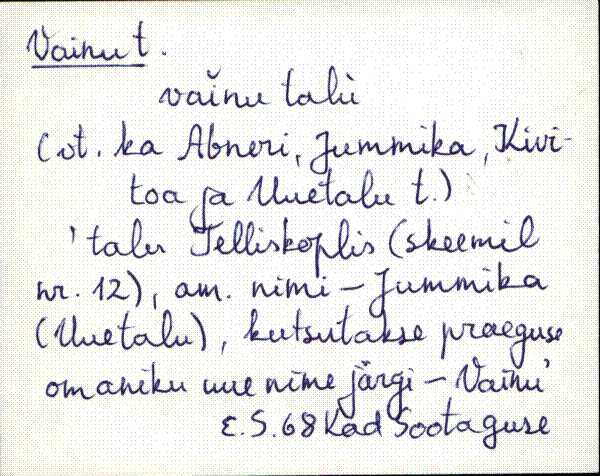 Vainu t.
vaĭnu talù
(vt. ka Abneri, Jummika, Kivi-
toa ja Uuetalu t.)
'talu Telliskoplis (skeemil
nr. 12), am. nimi – Jummika
(Uuetalu), kutsutakse praeguse
omaniku uue nime järgi – Vainu'
E.S. 68 Kad Sootaguse